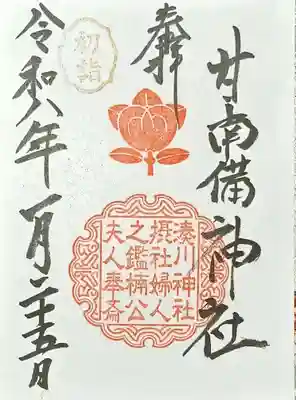 奉拝
甘南備神社
湊川神社
摂社婦人
之鑑楠公
夫人奉斎
初詣
令和八年一月二十五日